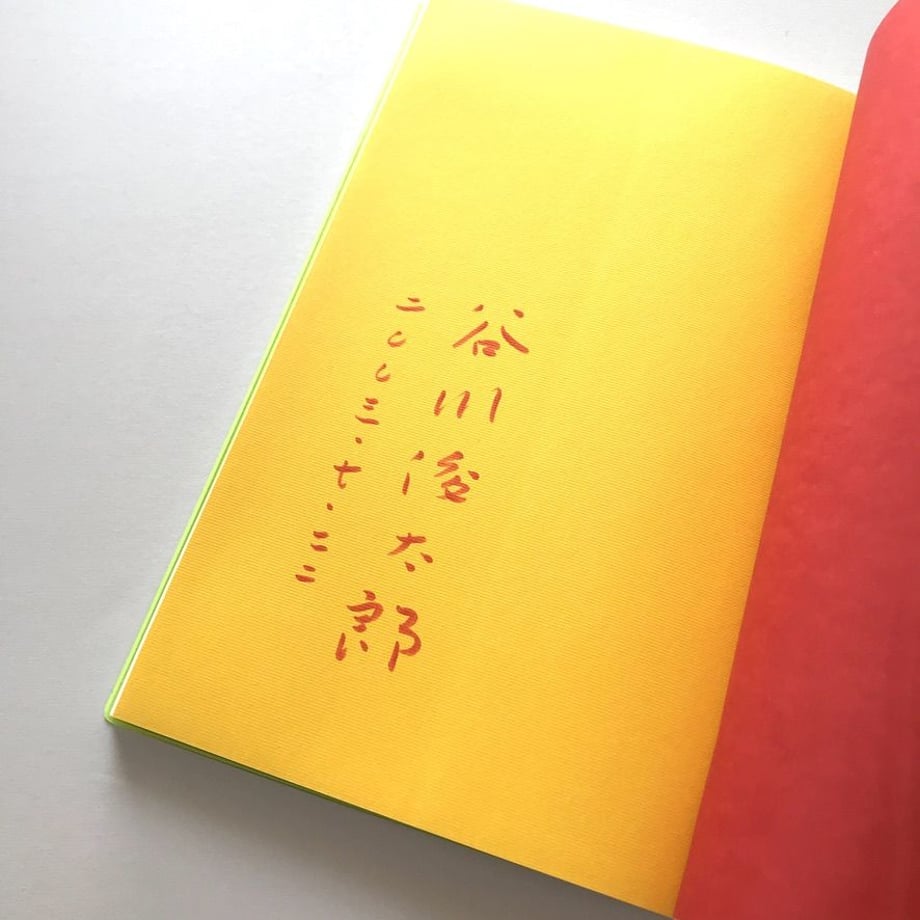 谷川俊太郎
二〇〇三・七・二二